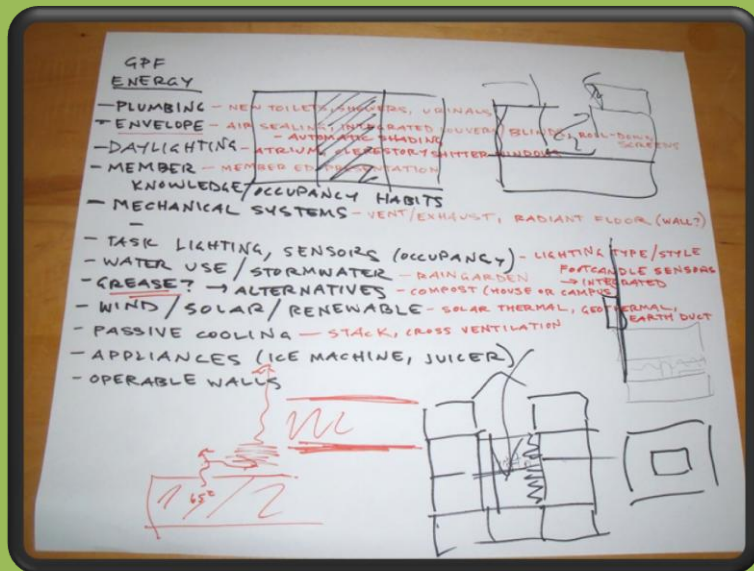 GPF
ENERGY
- PLUMBING - NEW TOILETS, SHOWERS, URINALS
- ENVELOPE - AIR SEALING, INTEGRATED LOUVERS/BLINDS, ROLL-DOWN SCREENS
- AUTOMATIC SHADING
- DAYLIGHTING - ATRIUM, CLERESTORY, SHITTER WINDOW
- MEMBER - MEMBER ED. PRESENTATION
KNOWLEDGE/OCCUPANCY HABITS
- MECHANICAL SYSTEMS - VENT/EXHAUST, RADIANT FLOOR (WALL?)
-
- TASK LIGHTING, SENSORS (OCCUPANCY) - LIGHTING TYPE/STYLE
FOOTCANDLE SENSORS
- WATER USE/STORMWATER - RAINGARDEN → INTEGRATED
- GREASE? → ALTERNATIVES - COMPOST (HOUSE OR CAMPUS)
- WIND/SOLAR/RENEWABLE - SOLAR THERMAL, GEOTHERMAL,
EARTH DUCT
- PASSIVE COOLING - STACK, CROSS VENTILATION
- APPLIANCES (ICE MACHINE, JUICER)
- OPERABLE WALLS
65°